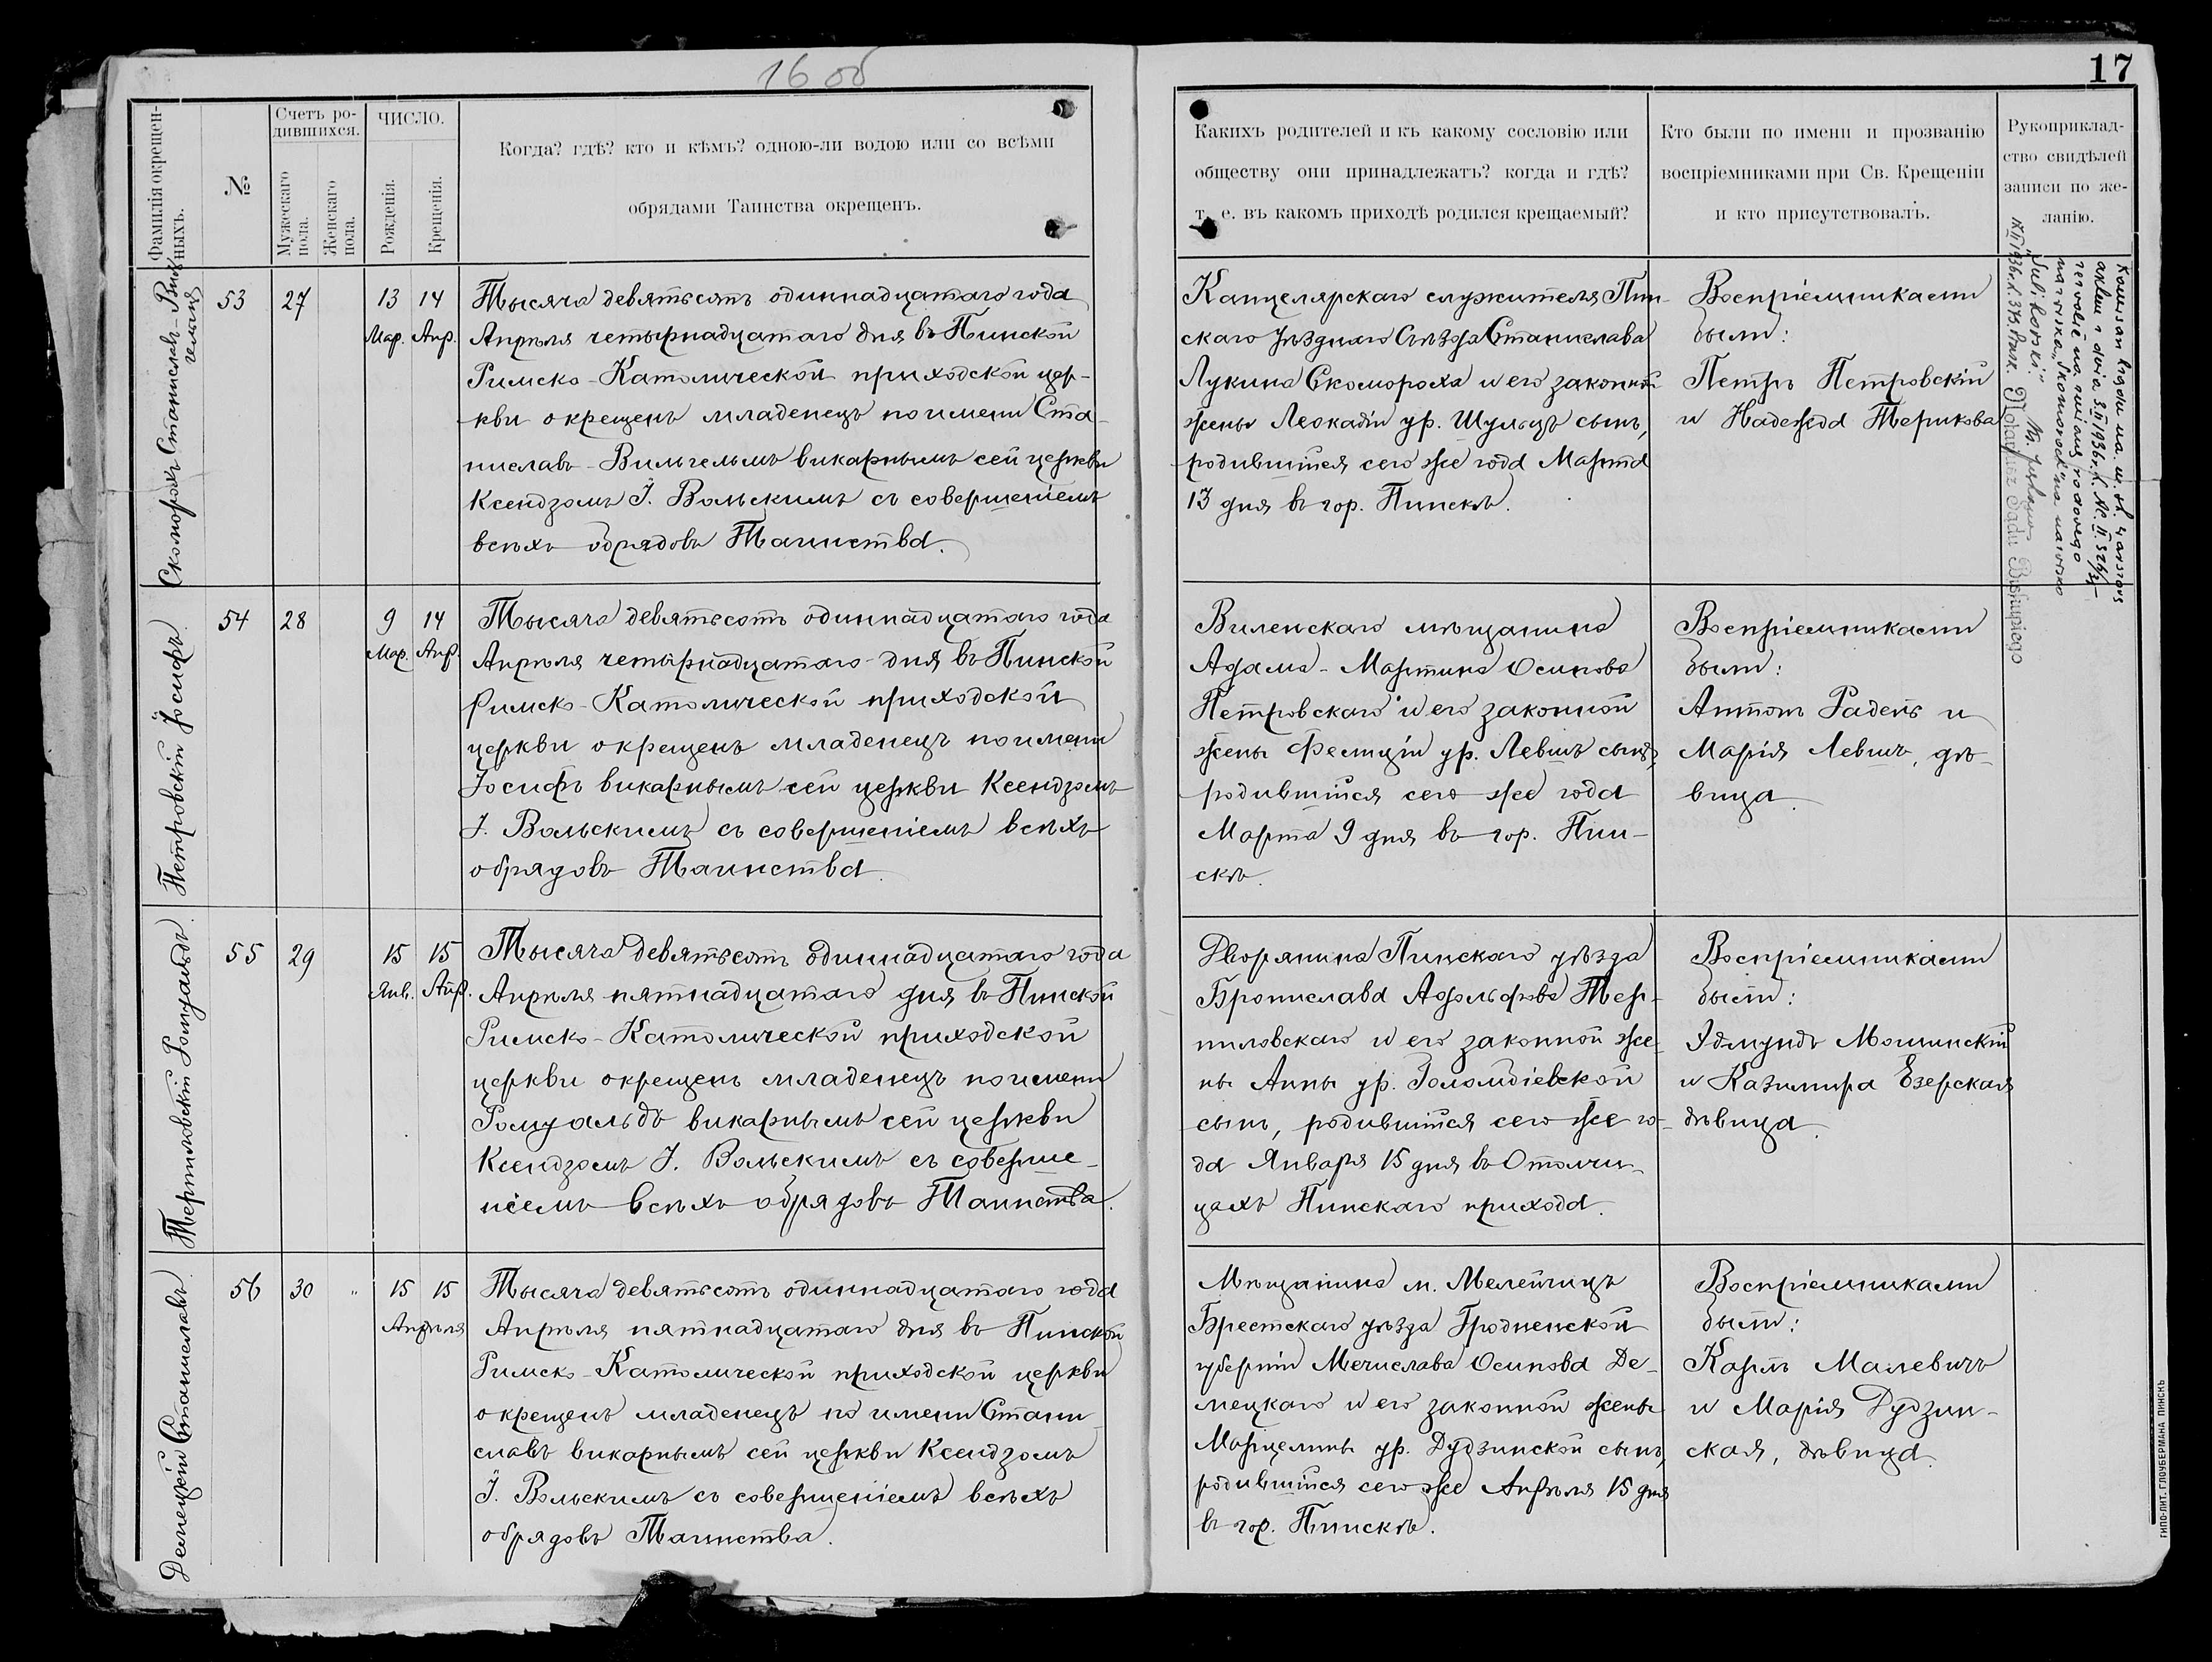 16 об
17
Фамилія окрещен-
ныхъ.
№
Счетъ ро-
дившихся.
Мужескаго
пола.
Женскаго
пола.
ЧИСЛО.
Рожденія.
Крещенія.
Когда? гдѣ? кто и кѣмъ? одною-ли водою или со всѣми
обрядами Таинства окрещенъ.
Какихъ родителей и къ какому сословію или
обществу они принадлежатъ? когда и гдѣ?
т. е. въ какомъ приходѣ родился крещаемый?
Кто были по имени и прозванію
воспріемниками при Св. Крещеніи
и кто присутствовалъ.
Рукоприклад-
ство свидѣлей
записи по же-
ланію.
Скоморохъ Станиславъ-Виль
гельмъ
53
27
13 14
Мар. Апр.
Тысяча девятьсотъ одиннадцатаго года
Апрѣля четырнадцатаго дня въ Пинской
Римско-Католической приходской цер-
кви окрещенъ младенецъ по имени Ста-
ниславъ-Вильгельмъ викарнымъ сей церкви
Ксендзомъ І. Вольскимъ съ совершеніемъ
всѣхъ обрядовъ Таинства.
Канцелярскаго служителя Пин-
скаго Уѣзднаго Съѣзда Станислава
Лукина Скомороха и его законной
жены Леокадіи ур. Шульцъ сынъ,
родившійся сего же года Марта
13 дня въ гор. Пинскѣ.
Воспріемниками
были:
Петръ Петровскій
и Надежда Терикова
akcie z dnia 3.II 1936 r. № II 326/3
zezwolił na zmianę rodowego
nazwiska „Skomoroch" na nazwisko
„Sulikowski".
Notarjusz Sądu Biskupiego
Петровскій Іосифъ.
54
28
9 14
Мар. Апр.
Тысяча девятьсотъ одиннадцатаго года
Апрѣля четырнадцатаго дня въ Пинской
Римско-Католической приходской
церкви окрещенъ младенецъ по имени
Іосифъ викарнымъ сей церкви Ксендзомъ
І. Вольскимъ съ совершеніемъ всѣхъ
обрядовъ Таинства.
Виленскаго мѣщанина
Адама-Мартина Осипова
Петровскаго и его законной
жены Фелиціи ур. Левшъ сынъ,
родившійся сего же года
Марта 9 дня въ гор. Пин-
скѣ.
Воспріемниками
были:
Антонъ Радень и
Марія Левшъ, дѣ-
вица.
Терпиловскій Ромуальдъ.
55
29
15 15
Янв. Апр.
Тысяча девятьсотъ одиннадцатаго года
Апрѣля пятнадцатаго дня въ Пинской
Римско-Католической приходской
церкви окрещенъ младенецъ по имени
Ромуальдъ викарнымъ сей церкви
Ксендзомъ І. Вольскимъ съ соверше-
ніемъ всѣхъ обрядовъ Таинства.
Дворянина Пинскаго уѣзда
Бронислава Адольфова Тер-
пиловскаго и его законной же-
ны Анны ур. Голомбіевской
сынъ, родившійся сего же го-
да Января 15 дня въ Отолчи-
цахъ Пинскаго прихода.
Воспріемниками
были:
Эдмундъ Мошинскій
и Казимира Езерская
дѣвица.
Демецкій Станиславъ.
56
30
"
15 15
Апрѣля
Тысяча девятьсотъ одиннадцатаго года
Апрѣля пятнадцатаго дня въ Пинской
Римско-Католической приходской церкви
окрещенъ младенецъ по имени Стани-
славъ викарнымъ сей церкви Ксендзомъ
І. Вольскимъ съ совершеніемъ всѣхъ
обрядовъ Таинства.
Мѣщанина м. Мелейчицъ
Брестскаго уѣзда Гродненской
губерніи Мечислава Осипова Де-
мецкаго и его законной жены
Марцелины ур. Дудзинской сынъ,
родившійся сего же Апрѣля 15 дня
въ гор. Пинскѣ.
Воспріемниками
были:
Карлъ Малевичъ
и Марія Дудзин-
ская, дѣвица.
ТИПО-ЛИТ. ГЛОУБЕРМАНА ПИНСКЪ